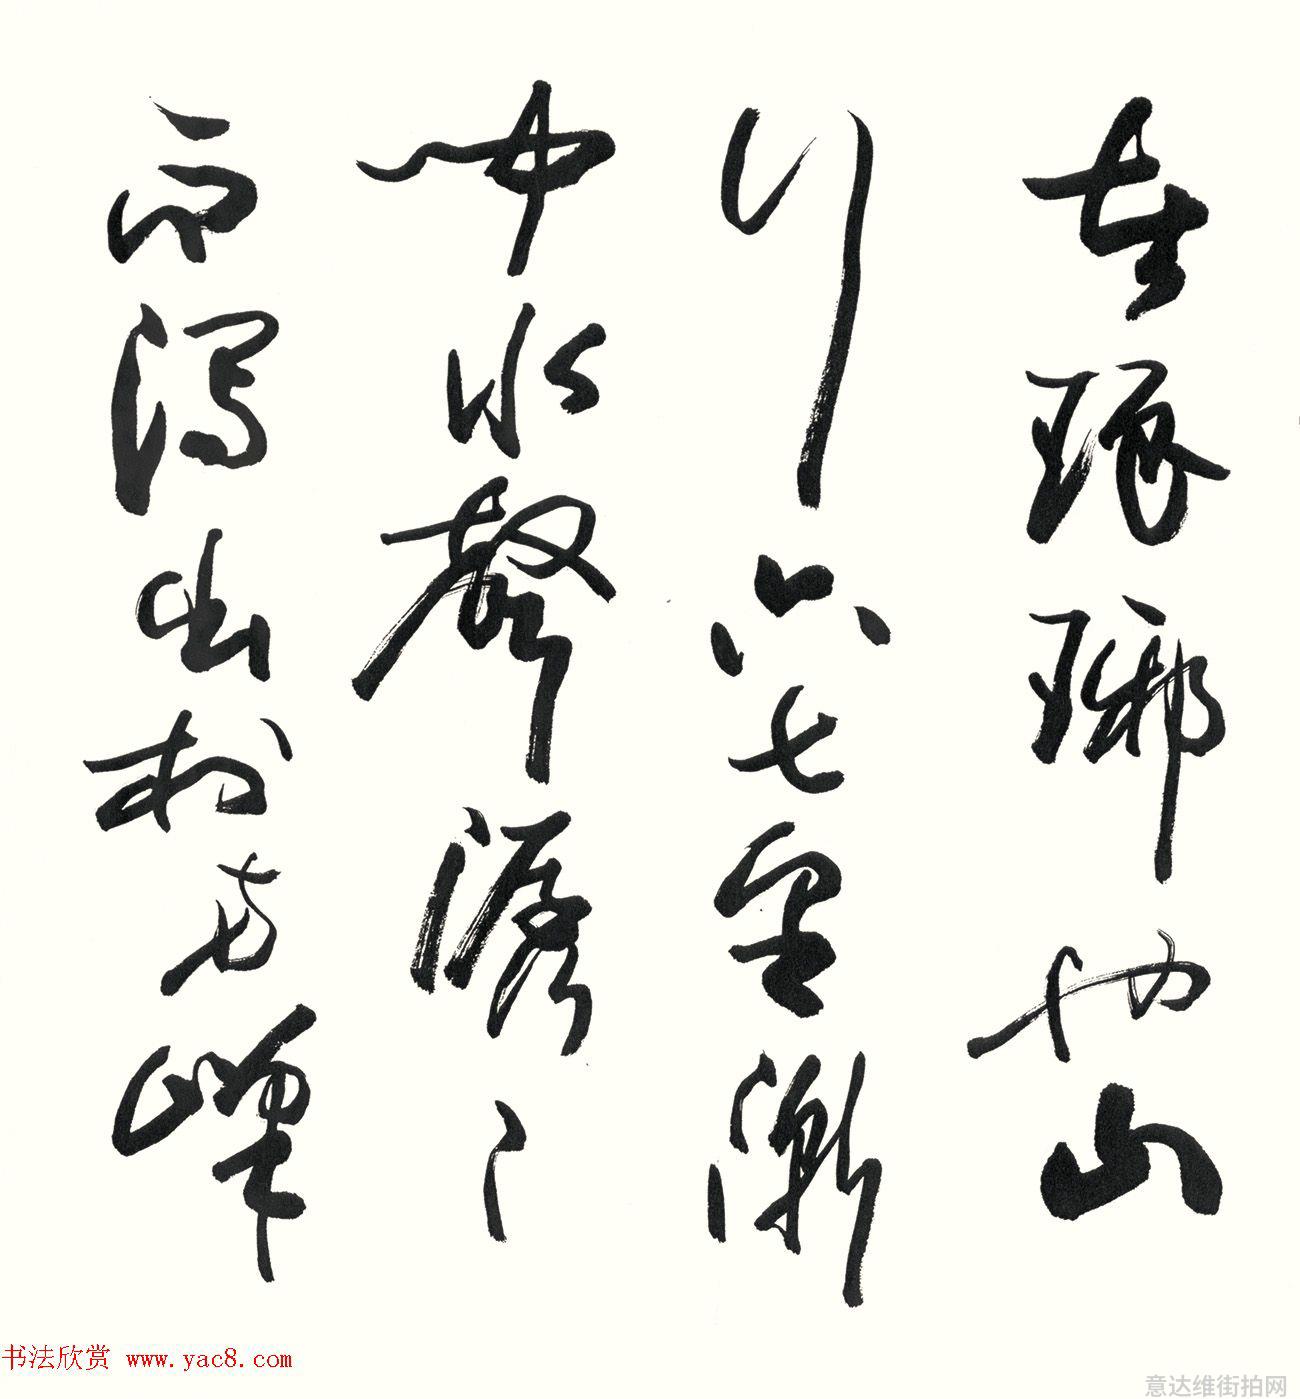 者琅琊也山
行六七里漸
聞水聲潺々
而瀉出於兩峰
书法欣赏 www.yac8.com
意达维街拍网